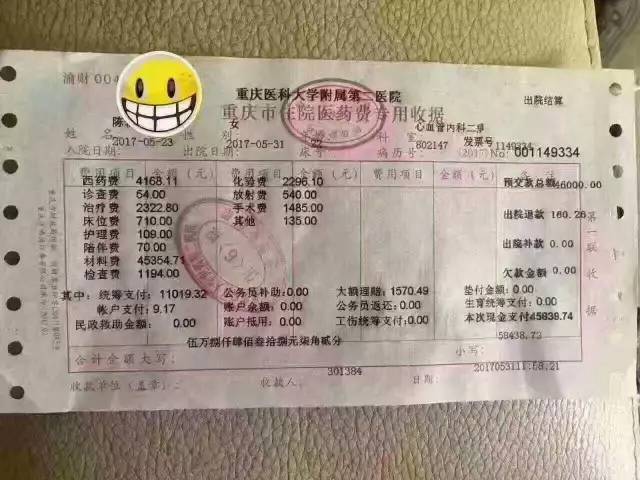 渝财 004
重庆医科大学附属第二医院 出院结算
重庆市住院医药费专用收据
陈 女 心血管内科二病
姓名 性别 科室 发票号 1149334
入院日期 2017-05-23 出院日期 2017-05-31 床号 22 病历号 802147 (2017) No: 001149334
费用项目 金额(元) 费用项目 金额(元) 费用项目 金额(元) 备注
西药费 4168.11 化验费 2296.10 预交款总额 46000.00
诊查费 54.00 放射费 540.00
治疗费 2322.80 手术费 1485.00 出院退款 160.26
床位费 710.00 其他 135.00
护理费 109.00 出院补款 0.00
陪伴费 70.00
材料费 45354.71 欠款金额 0.00
检查费 1194.00
其中: 统筹支付: 11019.32 公务员补助: 0.00 大额理赔: 1570.49 垫付金额: 0.00
帐户支付: 9.17 账户余额: 0.00 公务员退还: 0.00 生育统筹支付: 0.00
民政救助金额: 0.00 账户抵用: 0.00 工伤统筹支付: 0.00 本次现金支付: 45838.74
58438.72
伍万捌仟肆佰叁拾捌元柒角贰分
合计金额大写: 小写:
301384 2017053111:58.21
收款单位(盖章): 收款人: 日期:
第一联 收据